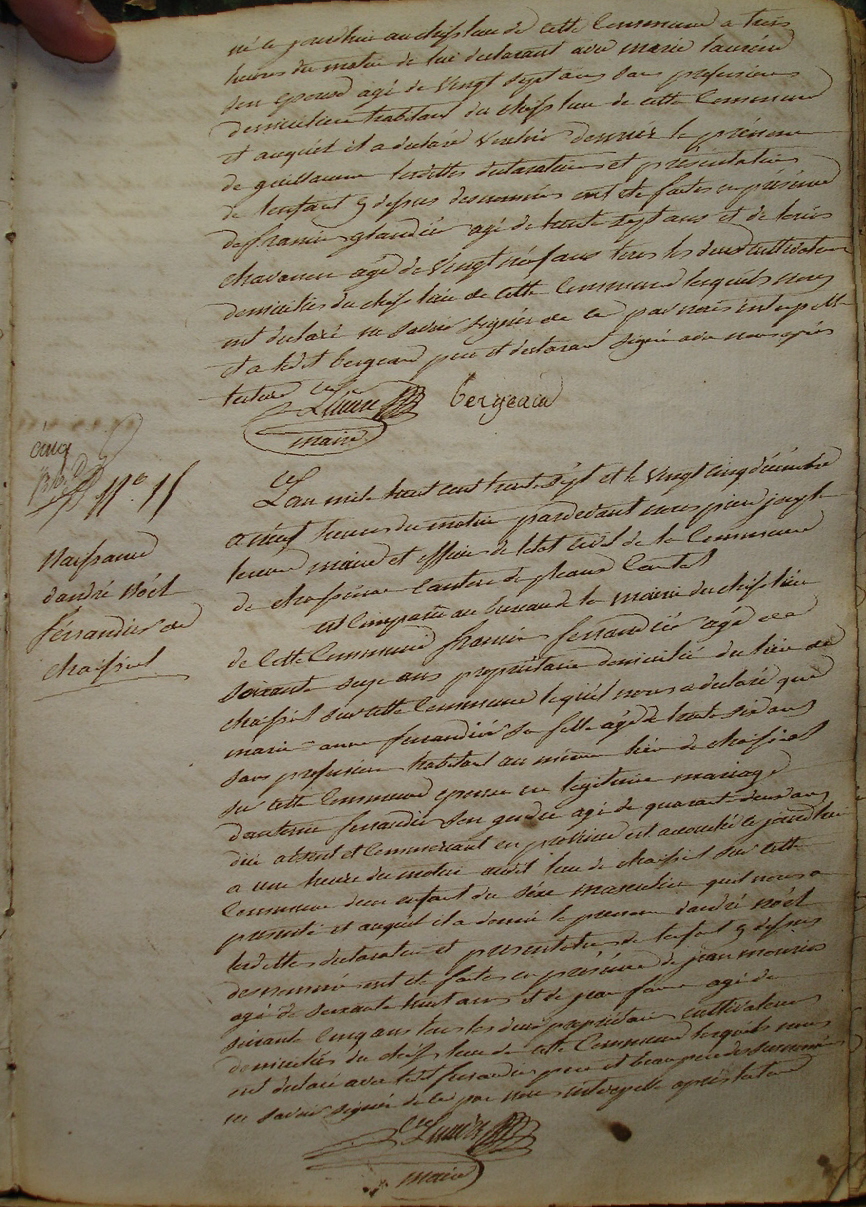 né ce jourdhui au cheflieu de cette Commune a trois
heures du matin de lui declarant avec marie
son epouse agé de vingt sept ans sans profession
domiciliée habitant du cheflieu de cette Commune
et auquel il a declaré vouloir donner le prénom
de guillaume lesdittes declaration et présentation
de lenfant cy dessus denommés ont eté faites en présence
de francois glandier agé de trente sept ans et de
agé de vingt neuf ans tous les deux cultivateurs
domiciliés du cheflieu de cette Commune lesquels nous
ont declaré ne savoir signer de ce par nous interpellé
et a ledit bergeaud pere et declarant signé avec nous après
lecture
bergeaud
maire
cinq
N.o 15
Naissance
dandré noël
férrandier de
L'an mile huit cent trente sept et le vingt cinq décembre
a neuf heures du matin pardevant nous pierre joseph
maire et officier de letat civil de la Commune
de canton de pleaux Cantal
est comparu au bureau de la mairie du cheflieu
de cette Commune francois ferrandier agé de
soixante ans propriétaire domicilié du lieu de
sur cette Commune lequel nous a declaré que
marie-anne ferrandier sa fille agé de trente six ans
sans profession habitant au même lieu de
sur cette Commune epouse en legitime mariage
dantoine ferrandier son gendre agé de quarante deux ans
absent et Commercant en province est accouché ce jourdhui
a une heure du matin audit lieu de sur cette
Commune dun enfant du séxe masculin quil nous a
presenté et auquel il a donné le prenom dandré noël
lesdittes declaration et presentation de lenfant cy dessus
denommé ont eté faites en présence de jean
agé de soixante huit ans et de jean agé de
soixante cinq ans tous les deux propriétaires cultivateurs
domiciliés du cheflieu de cette Commune lesquels nous
ont declaré avec ledit ferrandier pere et beau pere
ne savoir signer de ce par nous interpellé après lecture
maire